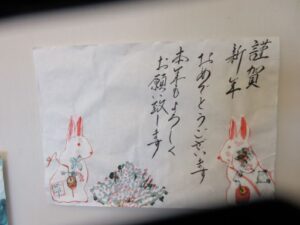 謹賀
新年
おめでとうございます
本年もよろしく
お願い致します